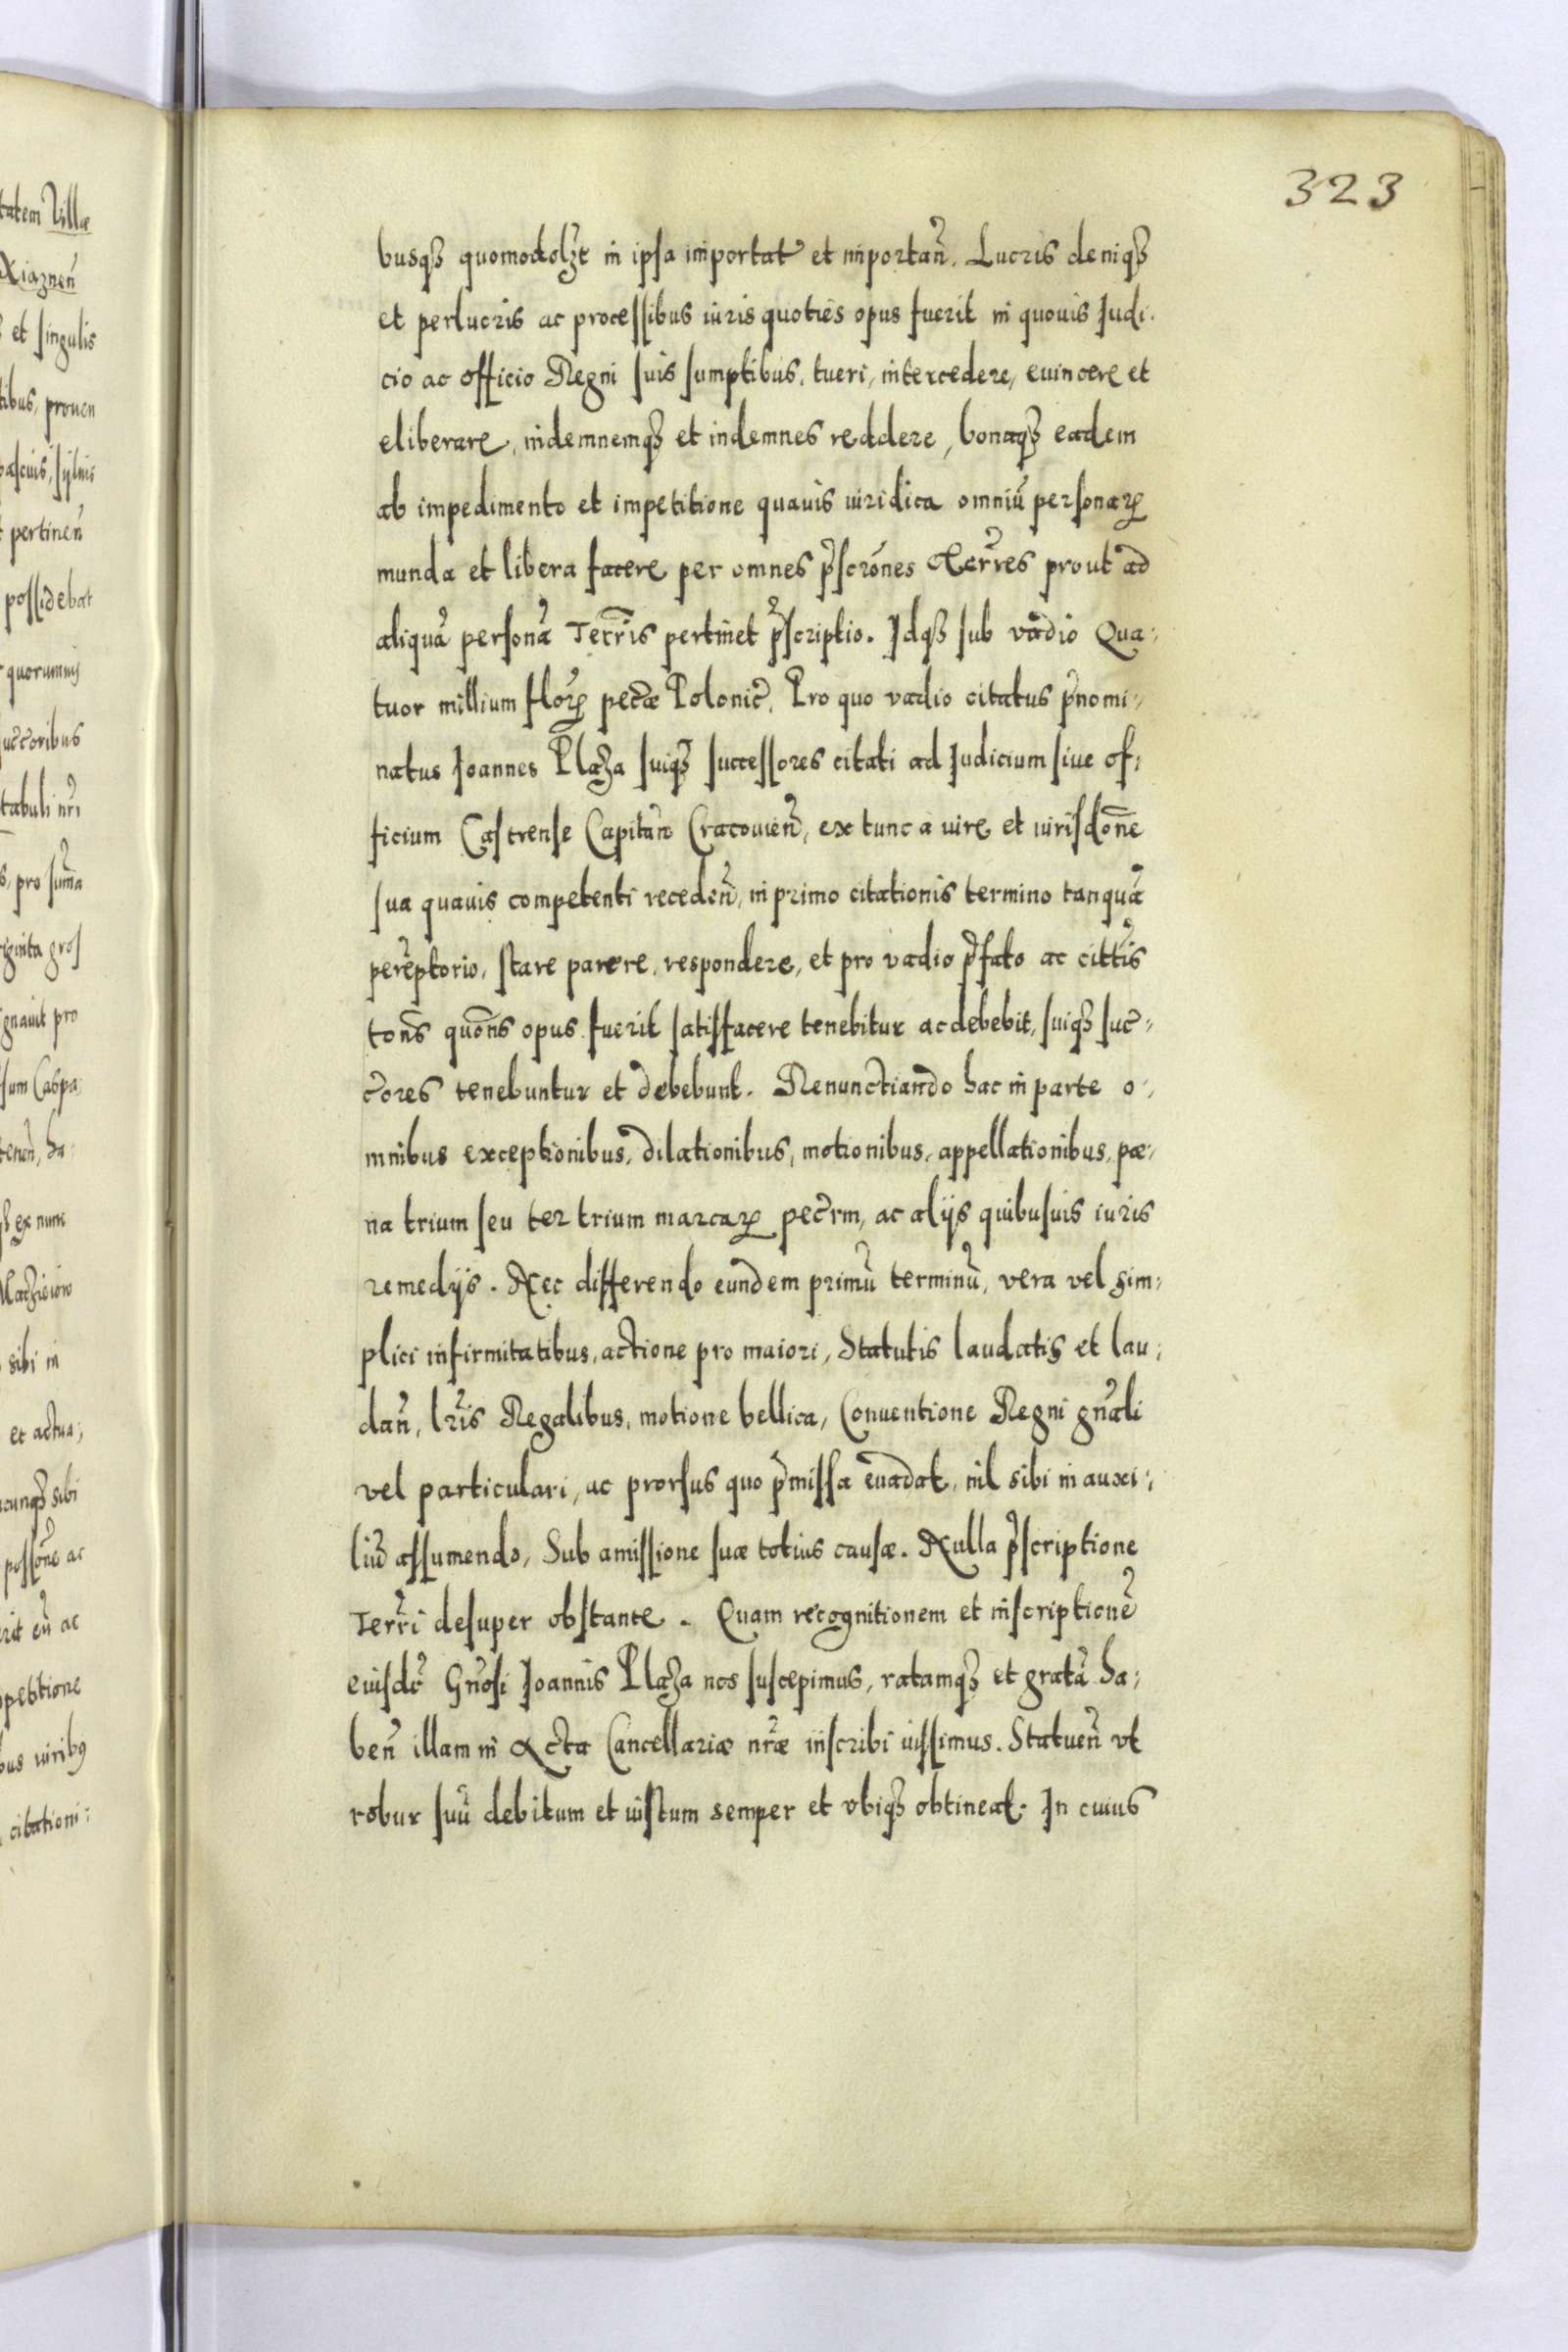 323
busqȝ quomodolȝt in ipsa importat et importan̄. Lucris deniqȝ
et perlucris ac processibus iuris quoties opus fuerit in quouis Judi-
cio ac officio Regni suis sumptibus, tueri, intercedere, euincere et
eliberare, indemnemqȝ et indemnes reddere, bonaqȝ eadem
ab impedimento et impetitione quauis iuridica omniū personarꝝ
munda et libera facere per omnes p̄scrōnes Terr̄es prout ad
aliquā personā Terr̄is pertinet p̄scriptio. Idqȝ sub vadio Qua-
tuor millium flor̄ꝝ pec̄æ Polonic̄. Pro quo vadio citatus p̄nomi-
natus Joannes Płaza suiqȝ successores citati ad Judicium siue of-
ficium Castrense Capitan̄ Cracouien̄, ex tunc a iure et iurisdōne
sua quauis competenti receden̄, in primo citationis termino tanquā
perēptorio, stare parere, respondere, et pro vadio p̄fato ac citt̄is
tōns quōns opus fuerit satisfacere tenebitur ac debebit, suiqȝ suc̄-
c̄ores tenebuntur et debebunt. Renunctiando hac in parte o-
mnibus exceptionibus, dilationibus, motionibus, appellationibus, pæ-
na trium seu ter trium marcarꝝ pec̄rm, ac alijs quibusuis iuris
remedijs. Nec differendo eundem primū terminū, vera vel sim-
plici infirmitatibus, actione pro maiori, Statutis laudatis et lau-
dan̄, lr̄is Regalibus, motione bellica, Conuentione Regni gn̄ali
vel particulari, ac prorsus quo p̄missa euadat, nil sibi in auxi-
liū assumendo, Sub amissione suæ totius causæ. Nulla p̄scriptione
Terr̄i desuper obstante. Quam recognitionem et inscriptionē
eiusdē Gn̄osi Joannis Płaza nos suscepimus, ratamqȝ et gratā ha-
ben̄ illam in Acta Cancellariæ nr̄æ inscribi iussimus. Statuen̄ vt
robur suū debitum et iustum semper et vbiqȝ obtineat. In cuius